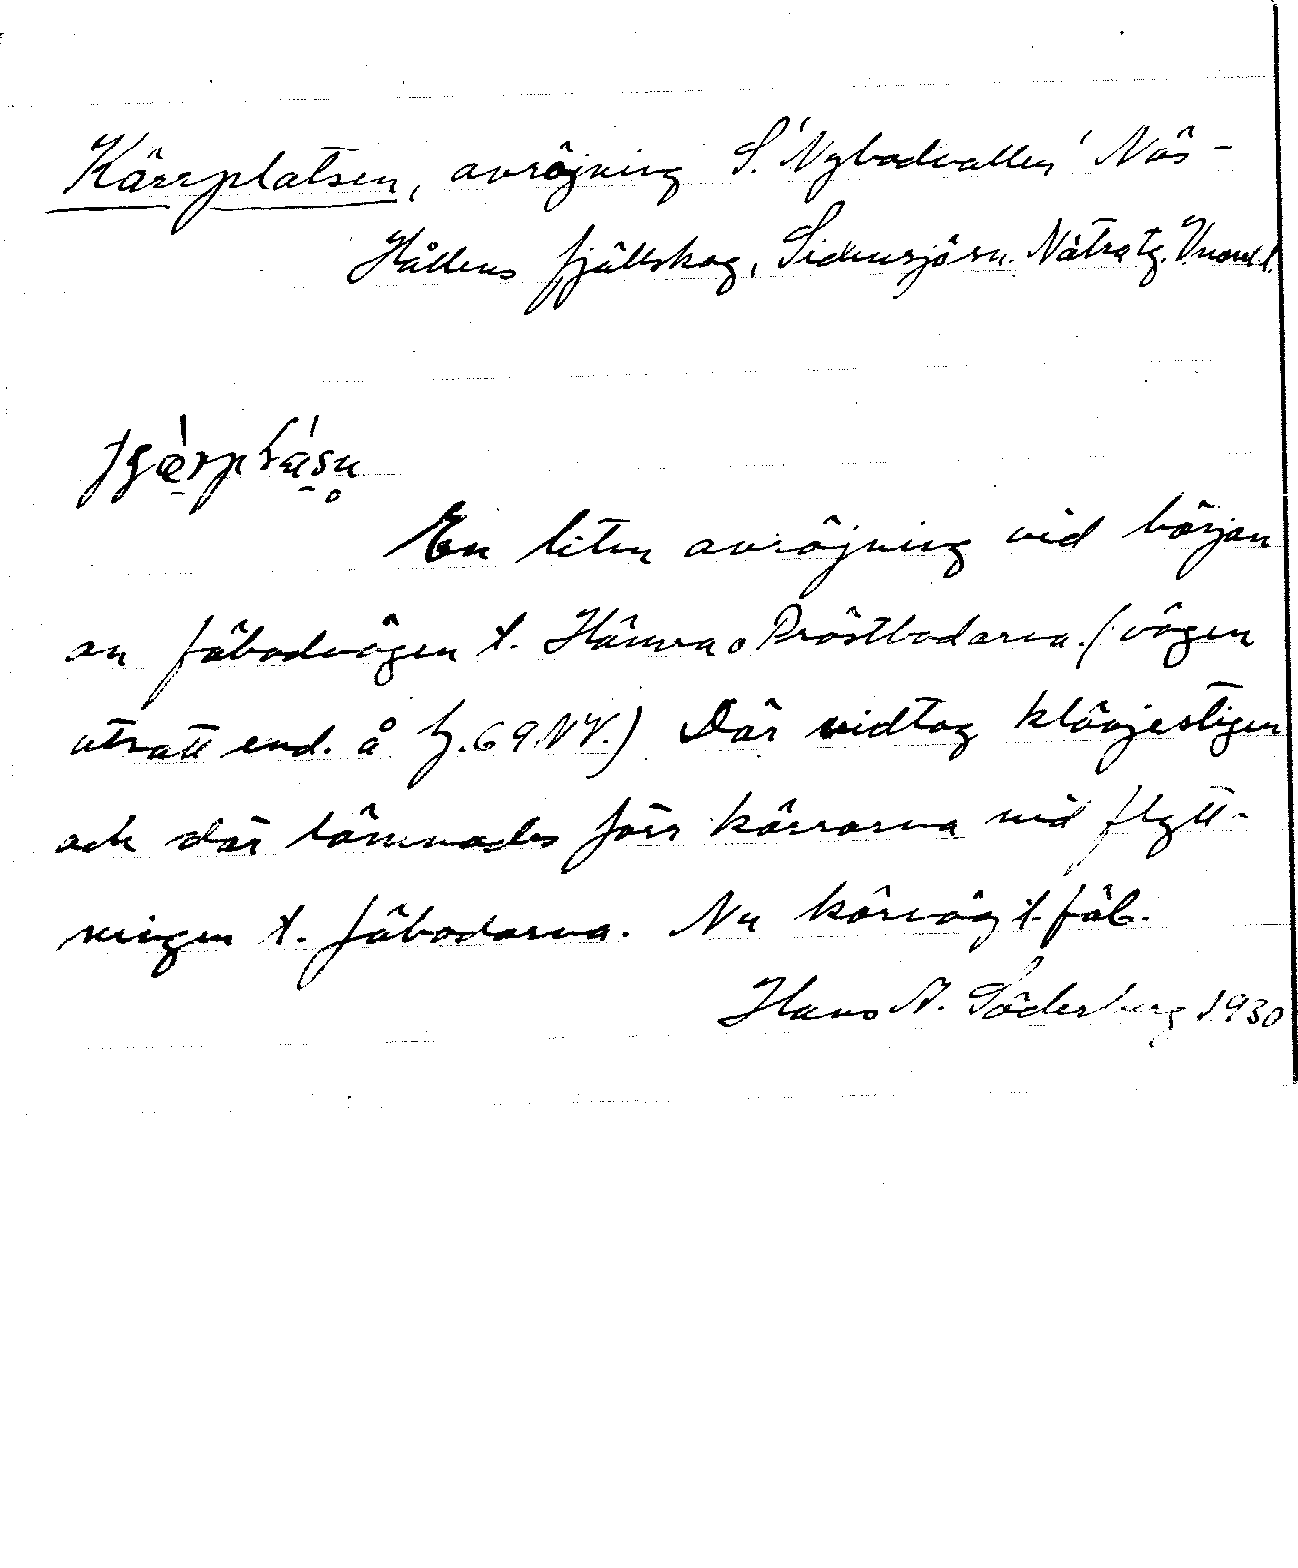 Kärrplatsen, avröjning S. 'Nybodvallen' Näs-
Hållens fjällskog, Sidensjö sn. Nätra tg. Vnorrl.
En liten avröjning vid början
av fäbodvägen t. Hämra o Prästbodarna. (vägen
utsatt end. å G. 69 NV.) Där vidtog klövjestigen
och där lämnades förr kärrorna vid flytt-
ningen t. fäbodarna. Nu körväg t. fäb.
Hans A. Söderberg 1930